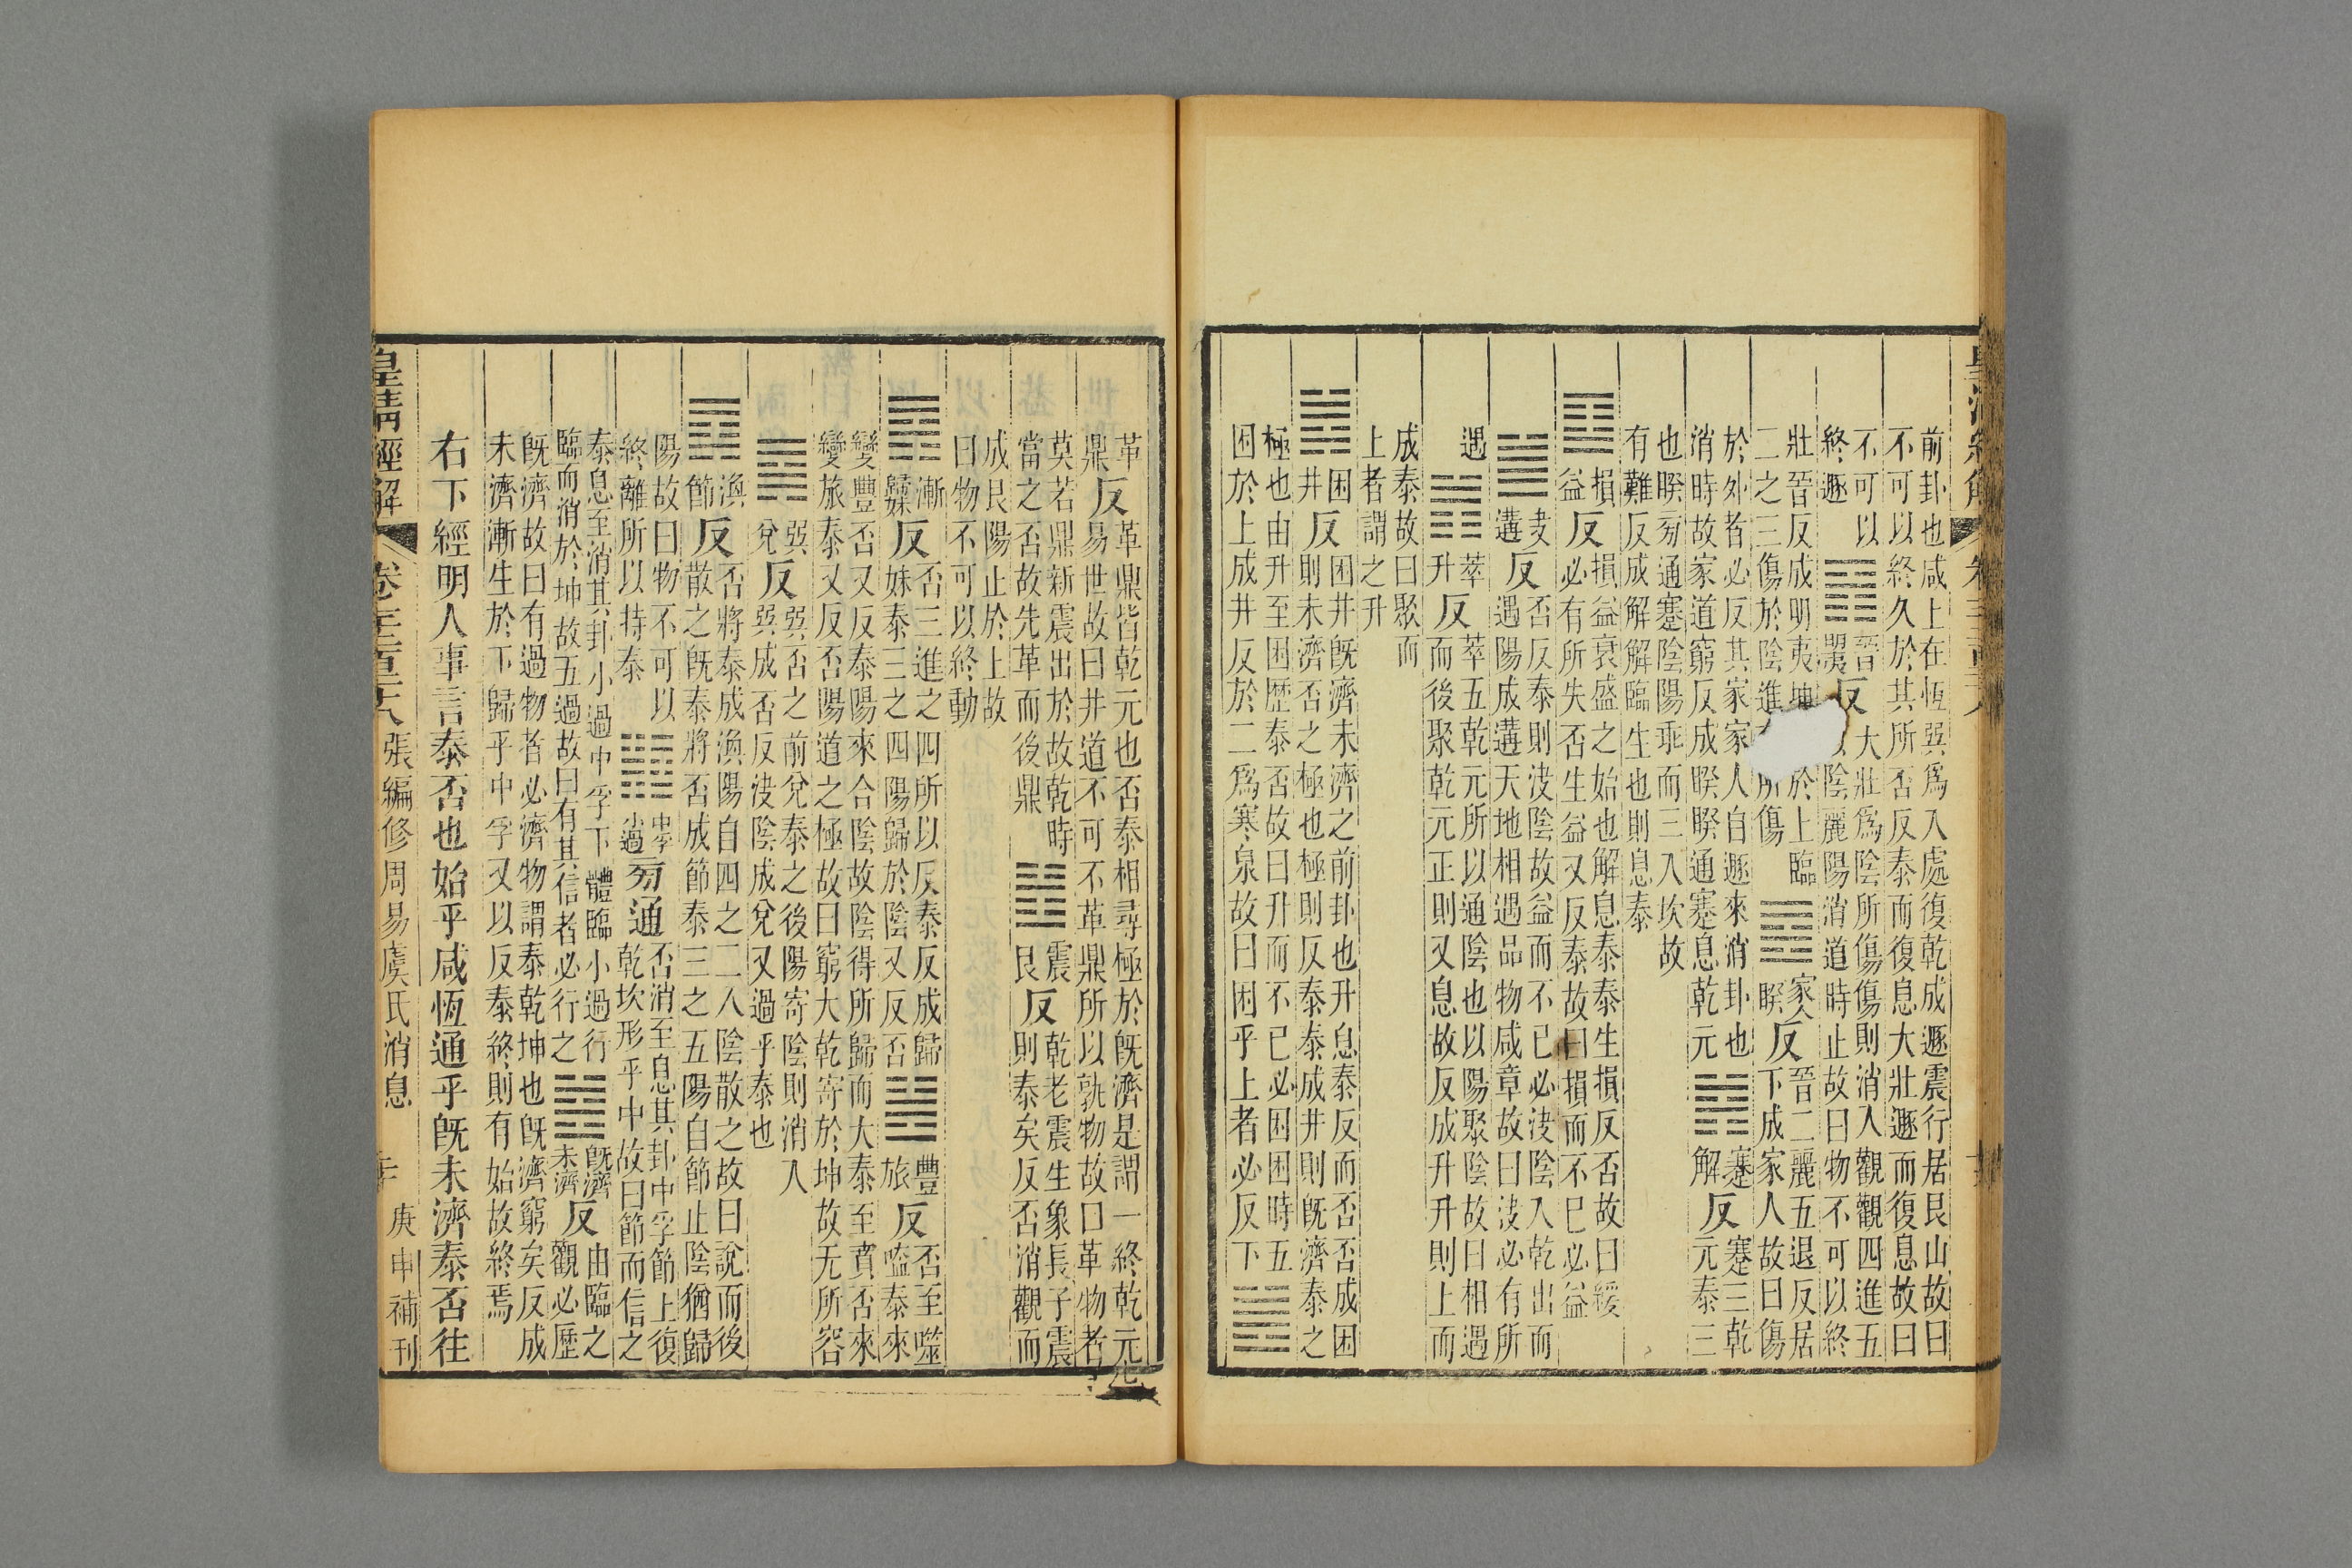 前卦也咸上在恆巽爲入處復乾成遯震行居艮山故曰
不可以終久於其所否反泰而復息大壯遯而復息故曰
不可以
終遯
䷢
晉
明夷
反
大壯爲陰所傷傷則消入觀觀四進五
陰麗陽消道時止故曰物不可以終
壯晉反成明夷坤
於上臨
二之三傷於陰進
所傷
䷤
家人
睽
反
晉二麗五退反居
下成家人故曰傷
於外者必反其家家人自遯來消卦也
消時故家道窮反成睽睽通蹇息乾元
䷦
蹇
解
反
蹇三乾
元泰三
也睽旁通蹇陰陽乖而三入坎故
有難反成解解臨生也則息泰
䷨
損
益
反
損益衰盛之始也解息泰泰生損反否故曰緩
必有所失否生益又反泰故曰損而不已必益
䷪
夬
遘
反
否反泰則決陰故益而不已必決陰入乾出而
遇陽成遘天地相遇品物咸章故曰決必有所
遇
䷬
萃
升
反
萃五乾元所以通陰也以陽聚陰故曰相遇
而後聚乾元正則又息故反成升升則上而
成泰故曰聚而
上者謂之升
䷮
困
井
反
困井旣濟未濟之前卦也升息泰反而否否成困
則未濟否之極也極則反泰泰成井則旣濟泰之
極也由升至困歷泰否故曰升而不已必困困時五
困於上成井反於二爲寒泉故曰困乎上者必反下
䷰
革
鼎
反
革鼎皆乾元也否泰相尋極於旣濟是謂一終乾元
易世故曰井道不可不革鼎所以孰物故曰革物者
莫若鼎新震出於故乾時
當之否故先革而後鼎
䷲
震
艮
反
乾老震生象長子震
則泰矣反否消觀而
成艮陽止於上故
曰物不可以終動
䷴
漸
歸妹
反
否三進之四所以反泰反成歸
妹泰三之四陽歸於陰又反否
䷶
豐
旅
反
否至噬
嗑泰來
變豐否又反泰陽來合陰故陰得所歸而大泰至賁否來
變旅泰又反否陽道之極故曰窮大乾寄於坤故无所容
䷸
巽
兌
反
巽否之前兌泰之後陽寄陰則消入
巽成否反決陰成兌又過乎泰也
䷺
渙
節
反
否將泰成渙陽自四之二入陰散之故曰說而後
散之旣泰將否成節泰三之五陽自節止陰猶歸
陽故曰物不可以
終離所以持泰
䷼
中孚
小過
旁通
否消至息其卦中孚節上復
乾坎形乎中故曰節而信之
泰息至消其卦小過中孚下體臨小過行
臨而消於坤故五過故曰有其信者必行之
䷾
旣濟
未濟
反
由臨之
觀必歷
旣濟故曰有過物者必濟物謂泰乾坤也旣濟窮矣反成
未濟漸生於下歸乎中孚又以反泰終則有始故終焉
右下經明人事言泰否也始乎咸恆通乎旣未濟泰否往
皇清經解
張編修周易虞氏消息
庚申補刊